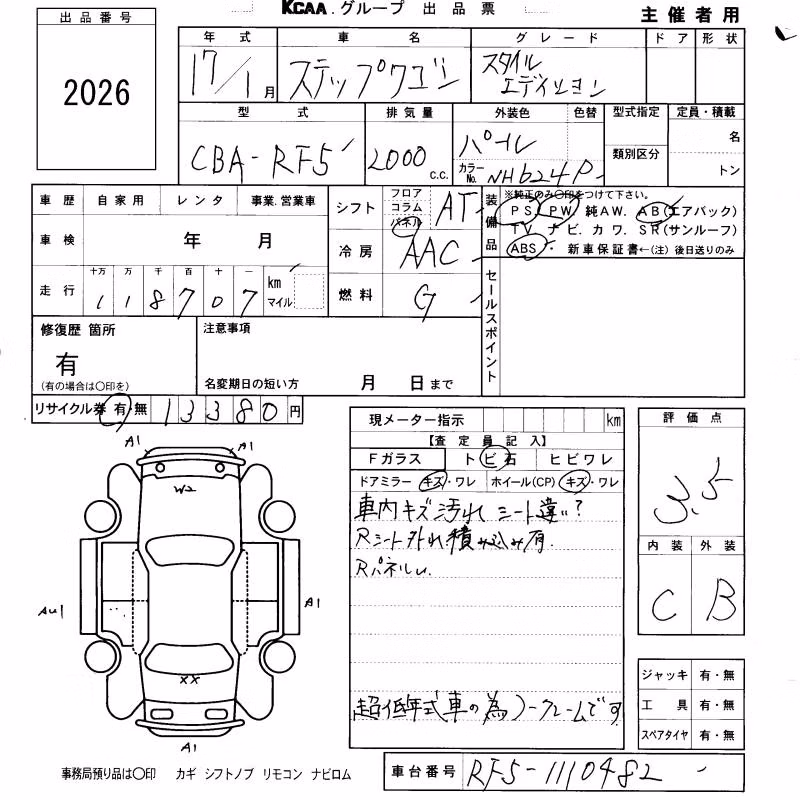 KCAA.グループ 出品票
主催者用
出品番号
2026
年式 車名 グレード ドア 形状
17/1月 ステップワゴン スタイル
エディション
型式 排気量 外装色 色替 型式指定 定員・積載
CBA-RF5 2000c.c. パール 名
カラーNo. NH624P 類別区分 トン
車歴 自家用 レンタ 事業.営業車
シフト フロア コラム パネル AT
装備品 ※純正のみ〇印をつけて下さい。
PS. PW. 純AW. AB(エアバック)
TV. ナビ. カワ. SR(サンルーフ)
ABS・ 新車保証書←(注)後日送りのみ
車検 年 月
冷房 AAC
走行 十万 万 千 百 十 一
118707 km マイル
燃料 G
セールスポイント
修復歴 箇所
有
(有の場合は〇印を)
注意事項
名変期日の短い方 月 日まで
リサイクル券 有・無 13380円
現メーター指示 km
【査定員記入】
Fガラス トビ石 ヒビワレ
ドアミラー キズ・ワレ ホイール(CP) キズ・ワレ
車内キズ汚れ シート違い?
Rシート外れ積み込み有.
Rパネルu.
超低年式車の為ノークレームです
評価点
3.5
内装 外装
C B
A1 A1
W2
AU1 A1
XX
A1
ジャッキ 有・無
工具 有・無
スペアタイヤ 有・無
事務局預り品は〇印 カギ シフトノブ リモコン ナビロム
車台番号 RF5-1110482